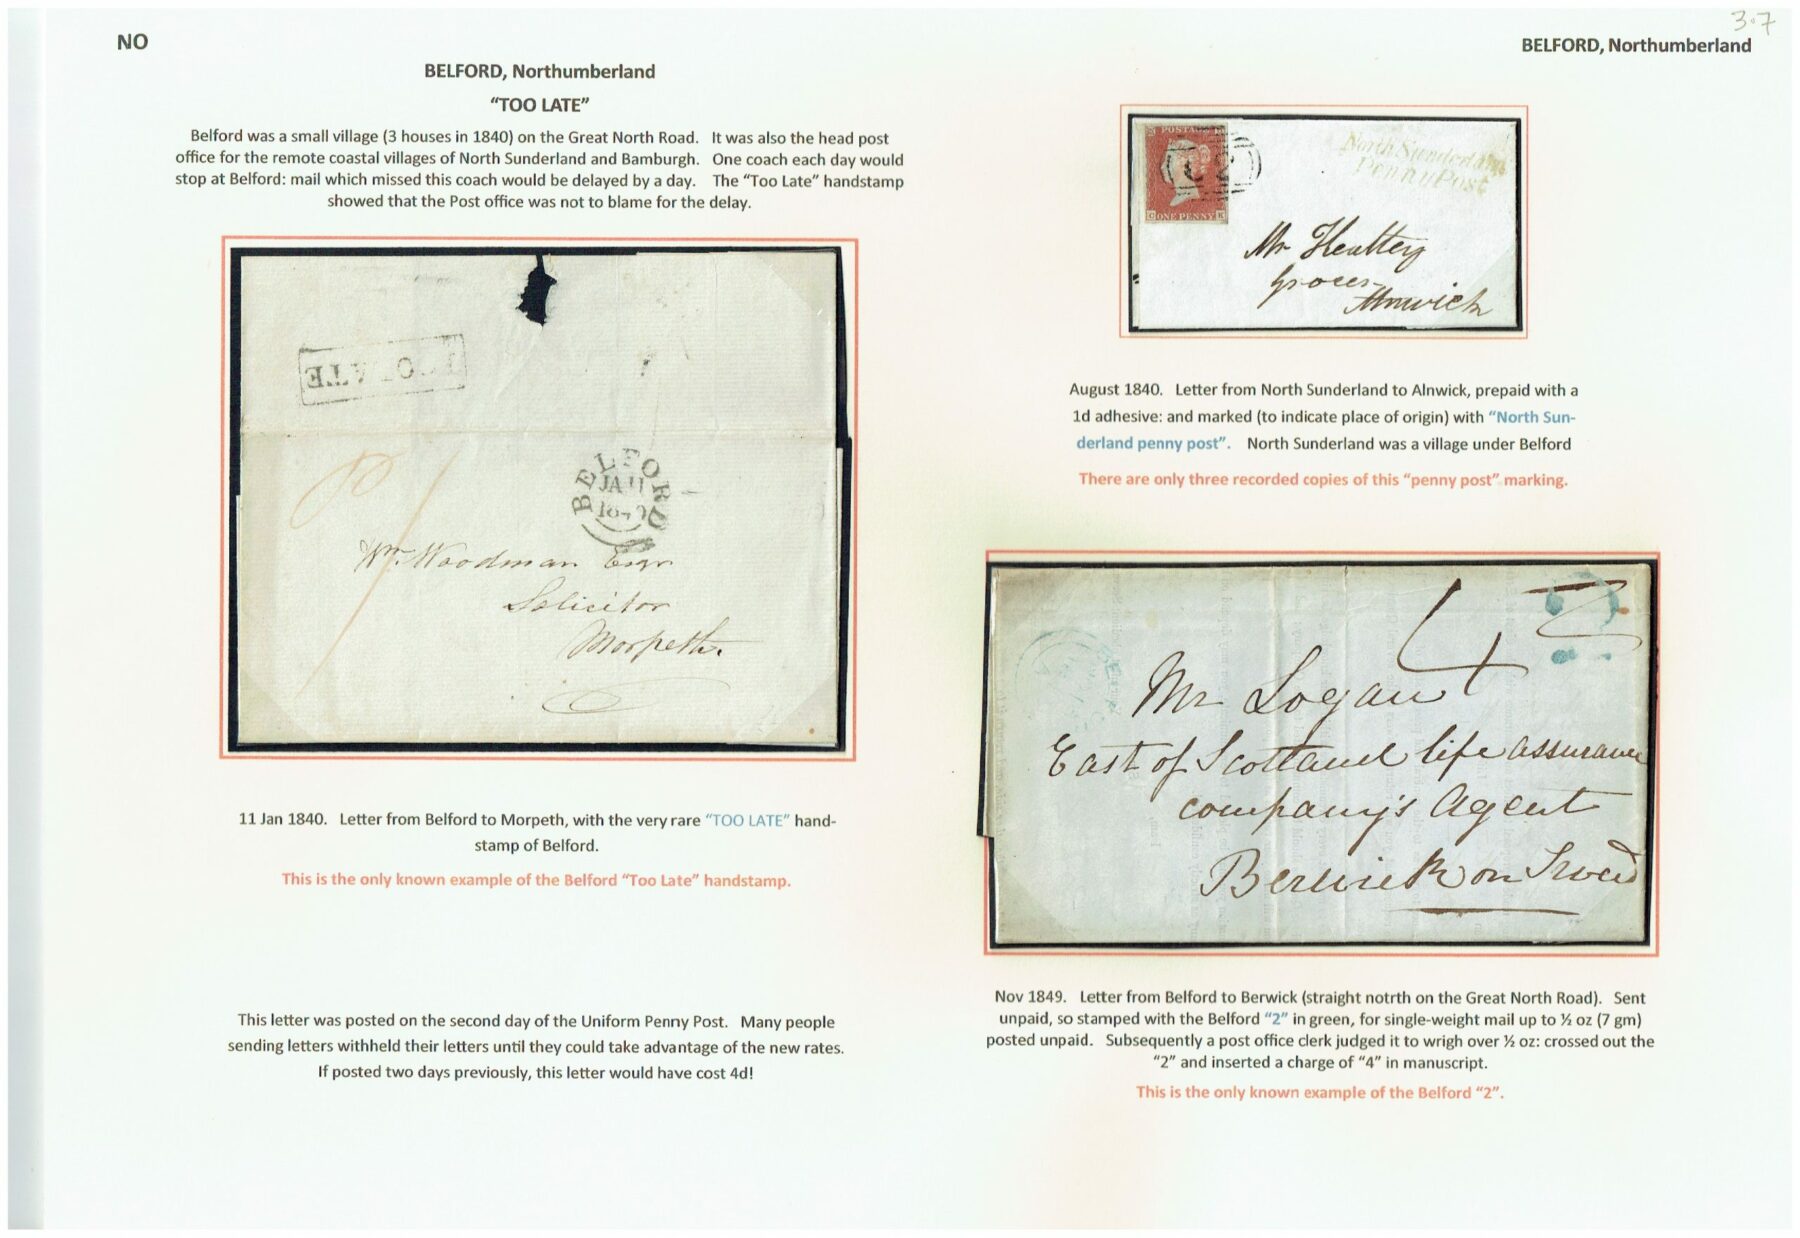 3.7
NO
BELFORD, Northumberland
BELFORD, Northumberland
“TOO LATE”
Belford was a small village (3 houses in 1840) on the Great North Road. It was also the head post
office for the remote coastal villages of North Sunderland and Bamburgh. One coach each day would
stop at Belford: mail which missed this coach would be delayed by a day. The “Too Late” handstamp
showed that the Post office was not to blame for the delay.
BELFORD
JA 11
1840
Wm Woodman Esqr
Solicitor
Morpeth.
11 Jan 1840. Letter from Belford to Morpeth, with the very rare “TOO LATE” hand-
stamp of Belford.
This is the only known example of the Belford “Too Late” handstamp.
This letter was posted on the second day of the Uniform Penny Post. Many people
sending letters withheld their letters until they could take advantage of the new rates.
If posted two days previously, this letter would have cost 4d!
POSTAGE
C ONE PENNY K
North Sunderland
Penny Post
Mr
Grocer
Alnwick
August 1840. Letter from North Sunderland to Alnwick, prepaid with a
1d adhesive: and marked (to indicate place of origin) with “North Sun-
derland penny post”. North Sunderland was a village under Belford
There are only three recorded copies of this “penny post” marking.
4
2
Mr Logan
East of Scotland life assurance
company's Agent
Berwick on Tweed
Nov 1849. Letter from Belford to Berwick (straight notrth on the Great North Road). Sent
unpaid, so stamped with the Belford “2” in green, for single-weight mail up to ½ oz (7 gm)
posted unpaid. Subsequently a post office clerk judged it to wrigh over ½ oz: crossed out the
“2” and inserted a charge of “4” in manuscript.
This is the only known example of the Belford “2”.